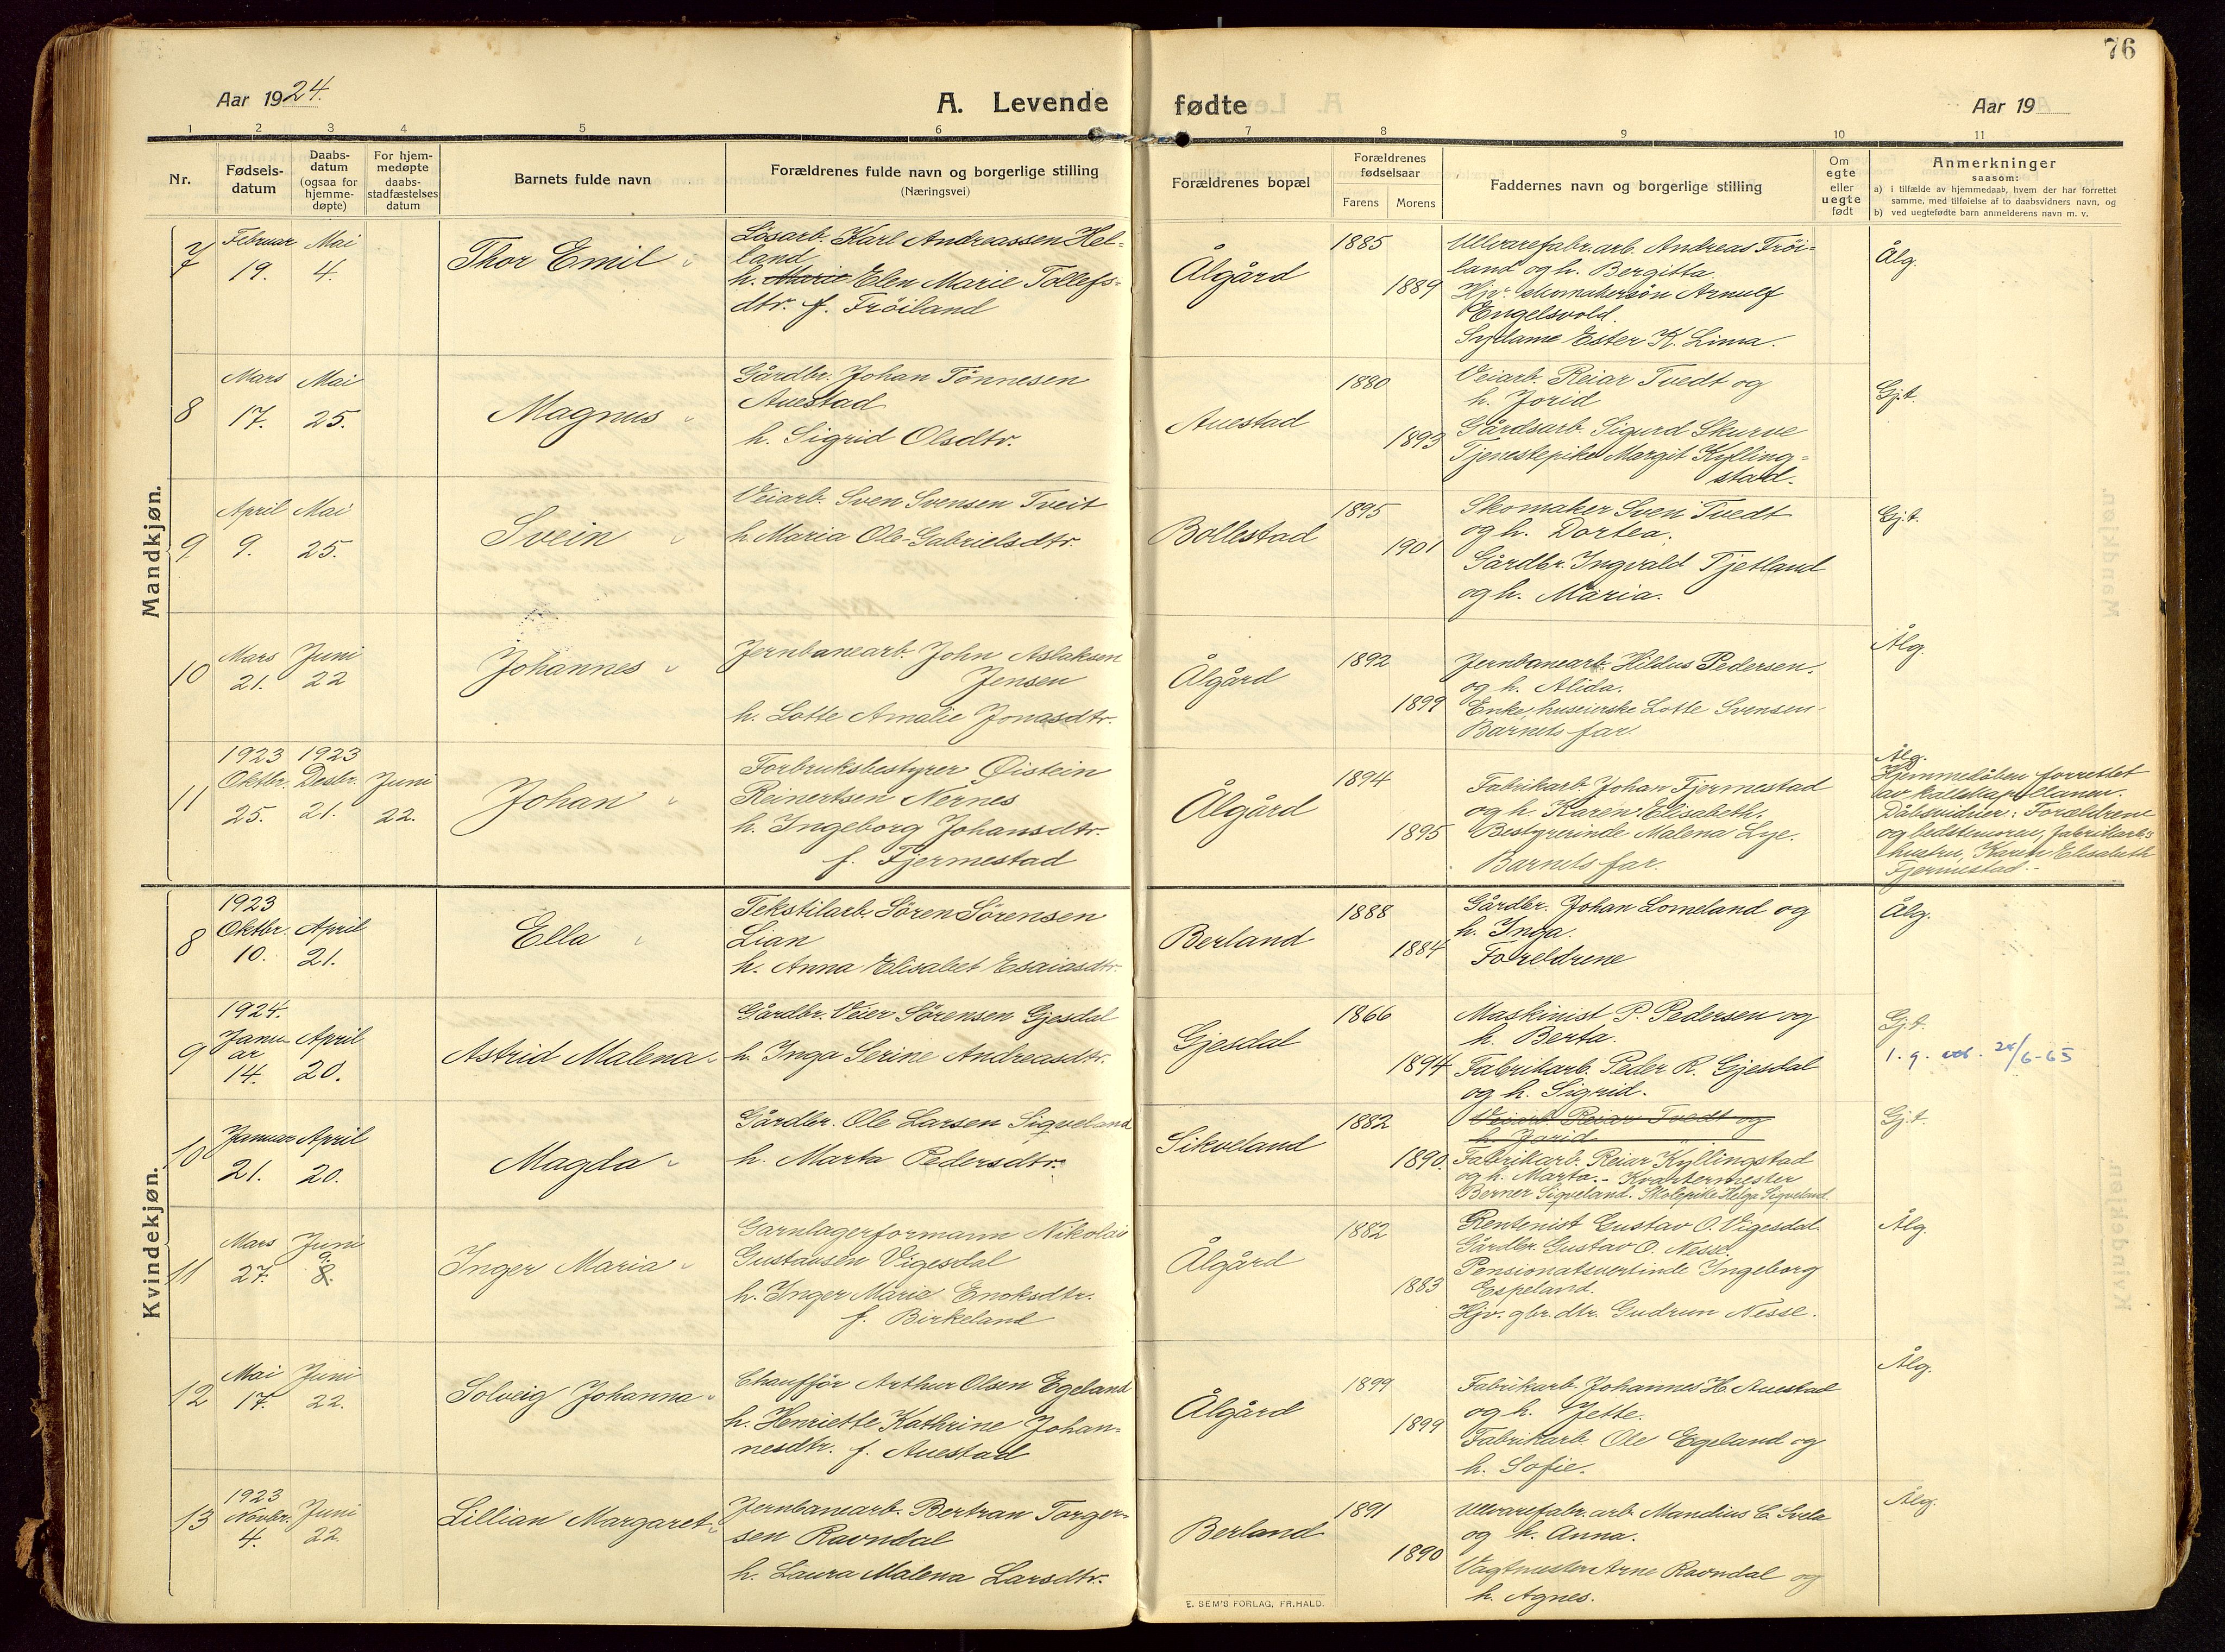 76
Aar 1924.
A. Levende
fødte
Aar 19
1 2 3 4 5 6 7 8 9 10 11
Nr.
Fødsels-
datum
Daabs-
datum
(ogsaa for
hjemme-
døpte)
For hjem-
medøpte
daabs-
stadfæstelses
datum
Barnets fulde navn
Forældrenes fulde navn og borgerlige stilling
(Næringsvei)
Forældrenes bopæl
Forældrenes
fødselsaar
Farens Morens
Faddernes navn og borgerlige stilling
Om
egte
eller
uegte
født
Anmerkninger
saasom:
a) i tilfælde av hjemmedaab, hvem der har forrettet
samme, med tilføielse af to daabsvidners navn, og
b) ved uegtefødte barn anmelderens navn m. v.
Mandkjøn.
7
Februar Mai
19. 4.
Thor Emil
Løsarb. Karl Andreassen Hel-
land
h. Marie Elen Marie Tollefs-
dtr. f. Frøiland
Ålgård
1885
1889
Ullvarefabr.arb. Andreas Frøi-
land og h. Bergitta.
Hjv. skomakersøn Arnulf
Engelsvold.
Sydame Ester K. Lima.
Ålg.
8
Mars Mai
17. 25.
Magnus
Gårdbr. Johan Tønnesen
Auestad
h. Sigrid Olsdtr.
Auestad
1880
1893
Veiarb. Reiar Tvedt og
h. Jorid
Gårdsarb. Sigurd Skurve
Tjenestepike Margit Kylling-
stad.
Gj.t.
9
April Mai
9. 25.
Svein
Veiarb. Sven Svensen Tveit
h. Maria Ole-Gabrielsdtr.
Bollestad
1895
1901
Skomaker Sven Tvedt
og h. Dortea.
Gårdbr. Ingvald Tjetland
og h. Maria.
Gj.t.
10
Mars Juni
21. 22
Johannes
Jernbanearb. John Aslaksen
Jensen
h. Lotte Amalie Jonasdtr.
Ålgård
1892
1899
Jernbanearb. Hildus Pedersen.
og h. Alida.
Enke, huseierske Lotte Svensen
Barnets far.
Ålg.
11
1923 1923
Oktbr. Desbr. Juni
25. 21. 22.
Johan
Forbruksbestyrer Øistein
Reinertsen Nernes
h. Ingeborg Johansdtr.
f. Fjermestad
Ålgård
1894
1895
Fabrikarb. Johan Fjermestad
og h. Karen Elisabeth.
Bestyrerinde Malena Lye.
Barnets far.
Ålg.
Hjemmedåben forrettet
av kallskapellanen.
Dåbsvidner: Forældrene
og bedstemoren, fabrikarb.s
hustru, Karen Elisabeth
Fjermestad.
Kvindekjøn.
8
1923
Oktbr. April
10. 21.
Ella
Tekstilarb. Søren Sørensen
Lian
h. Anna Elisabet Esaiasdtr.
Berland
1888
1884
Gårdbr. Johan Lomeland og
h. Inga.
Foreldrene
Ålg.
9
1924.
Janu- April
ar
14. 20.
Astrid Malena
Gårdbr. Veier Sørensen Gjesdal
h. Inga Serine Andreasdtr.
Gjesdal
1866
1894
Maskinist P. Pedersen og
h. Berta.
Fabrikarb. Peder R. Gjesdal
og h. Sigrid.
Gj.t.
1. g. att. 24/6-65
10
Januar April
21. 20.
Magda
Gårdbr. Ole Larsen Sigveland
h. Marta Pedersdtr.
Sikveland
1882
1890.
Veiarb Reiar Tvedt og
h. Jorid
Fabrikarb. Reiar Kyllingstad
og h. Marta. - Kvartermester
Berner Sigveland. Skolepike Helga Sigveland
Gj.t.
11
Mars Juni
9.
27. 8.
Inger Maria
Garnlagerformann Nikolai
Gustavsen Vigesdal
h. Inger Marie Enoksdtr.
f. Birkeland
Ålgård
1882
1883
Rentenist Gustav O. Vigesdal.
Gårdbr. Gustav O. Nesse.
Pensionatsvertinde Ingeborg
Espeland.
Hjv. gbr. dtr. Gudrun Nesse.
Ålg.
12
Mai Juni
17. 22.
Solveig Johanna
Chauffør Arthur Olsen Egeland
h. Henriette Kathrine Johan-
nesdtr. f. Auestad
Ålgård
1899
1899
Fabrikarb. Johannes H. Auestad
og h. Jette.
Fabrikarb. Ole Egeland og
h. Sofie.
Ålg.
13
1923
Novbr. Juni
4. 22.
Lillian Margaret
Jernbanearb. Bertran Torger-
sen Ravndal
h. Laura Malena Larsdtr.
Berland
1891
1890
Ullvarefabr.arb. Mandius C. Svela
og h. Anna.
Vagtmester Arne Ravndal og
h. Agnes.
Ålg.
E. SEM'S FORLAG, FR.HALD.